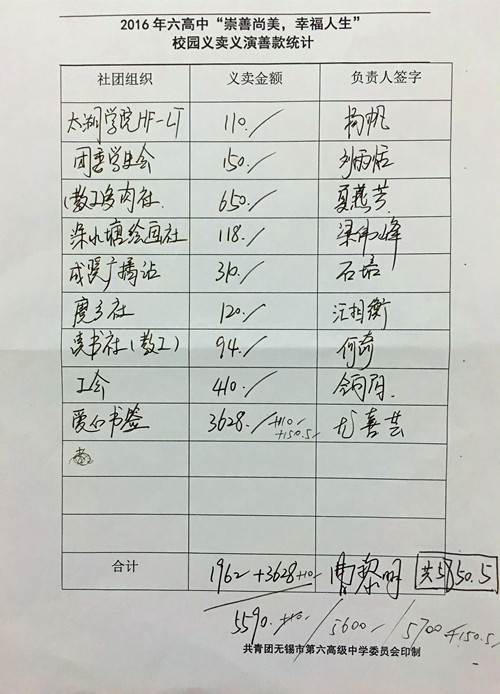 2016年六高中“崇善尚美，幸福人生”
校园义卖义演善款统计
社团组织 义卖金额 负责人签字
太湖学院HF-LT 110./ 杨帆
团委学生会 150./
(教工)多肉社. 650./ 夏燕芳.
深水塘绘画社 118./ 梁伟峰
成贤广播站 310./ 石培
魔方社 120./ 汪相衡
读书社(教工) 94./ 何奇
工会 410./
爱心书签 3628./ +110/ +150.5/ 尤喜芸
合计 1962+3628+110/ 曹黎明 共5850.5
5590. +110/ /5600/ /5700 +150.5/
共青团无锡市第六高级中学委员会印制